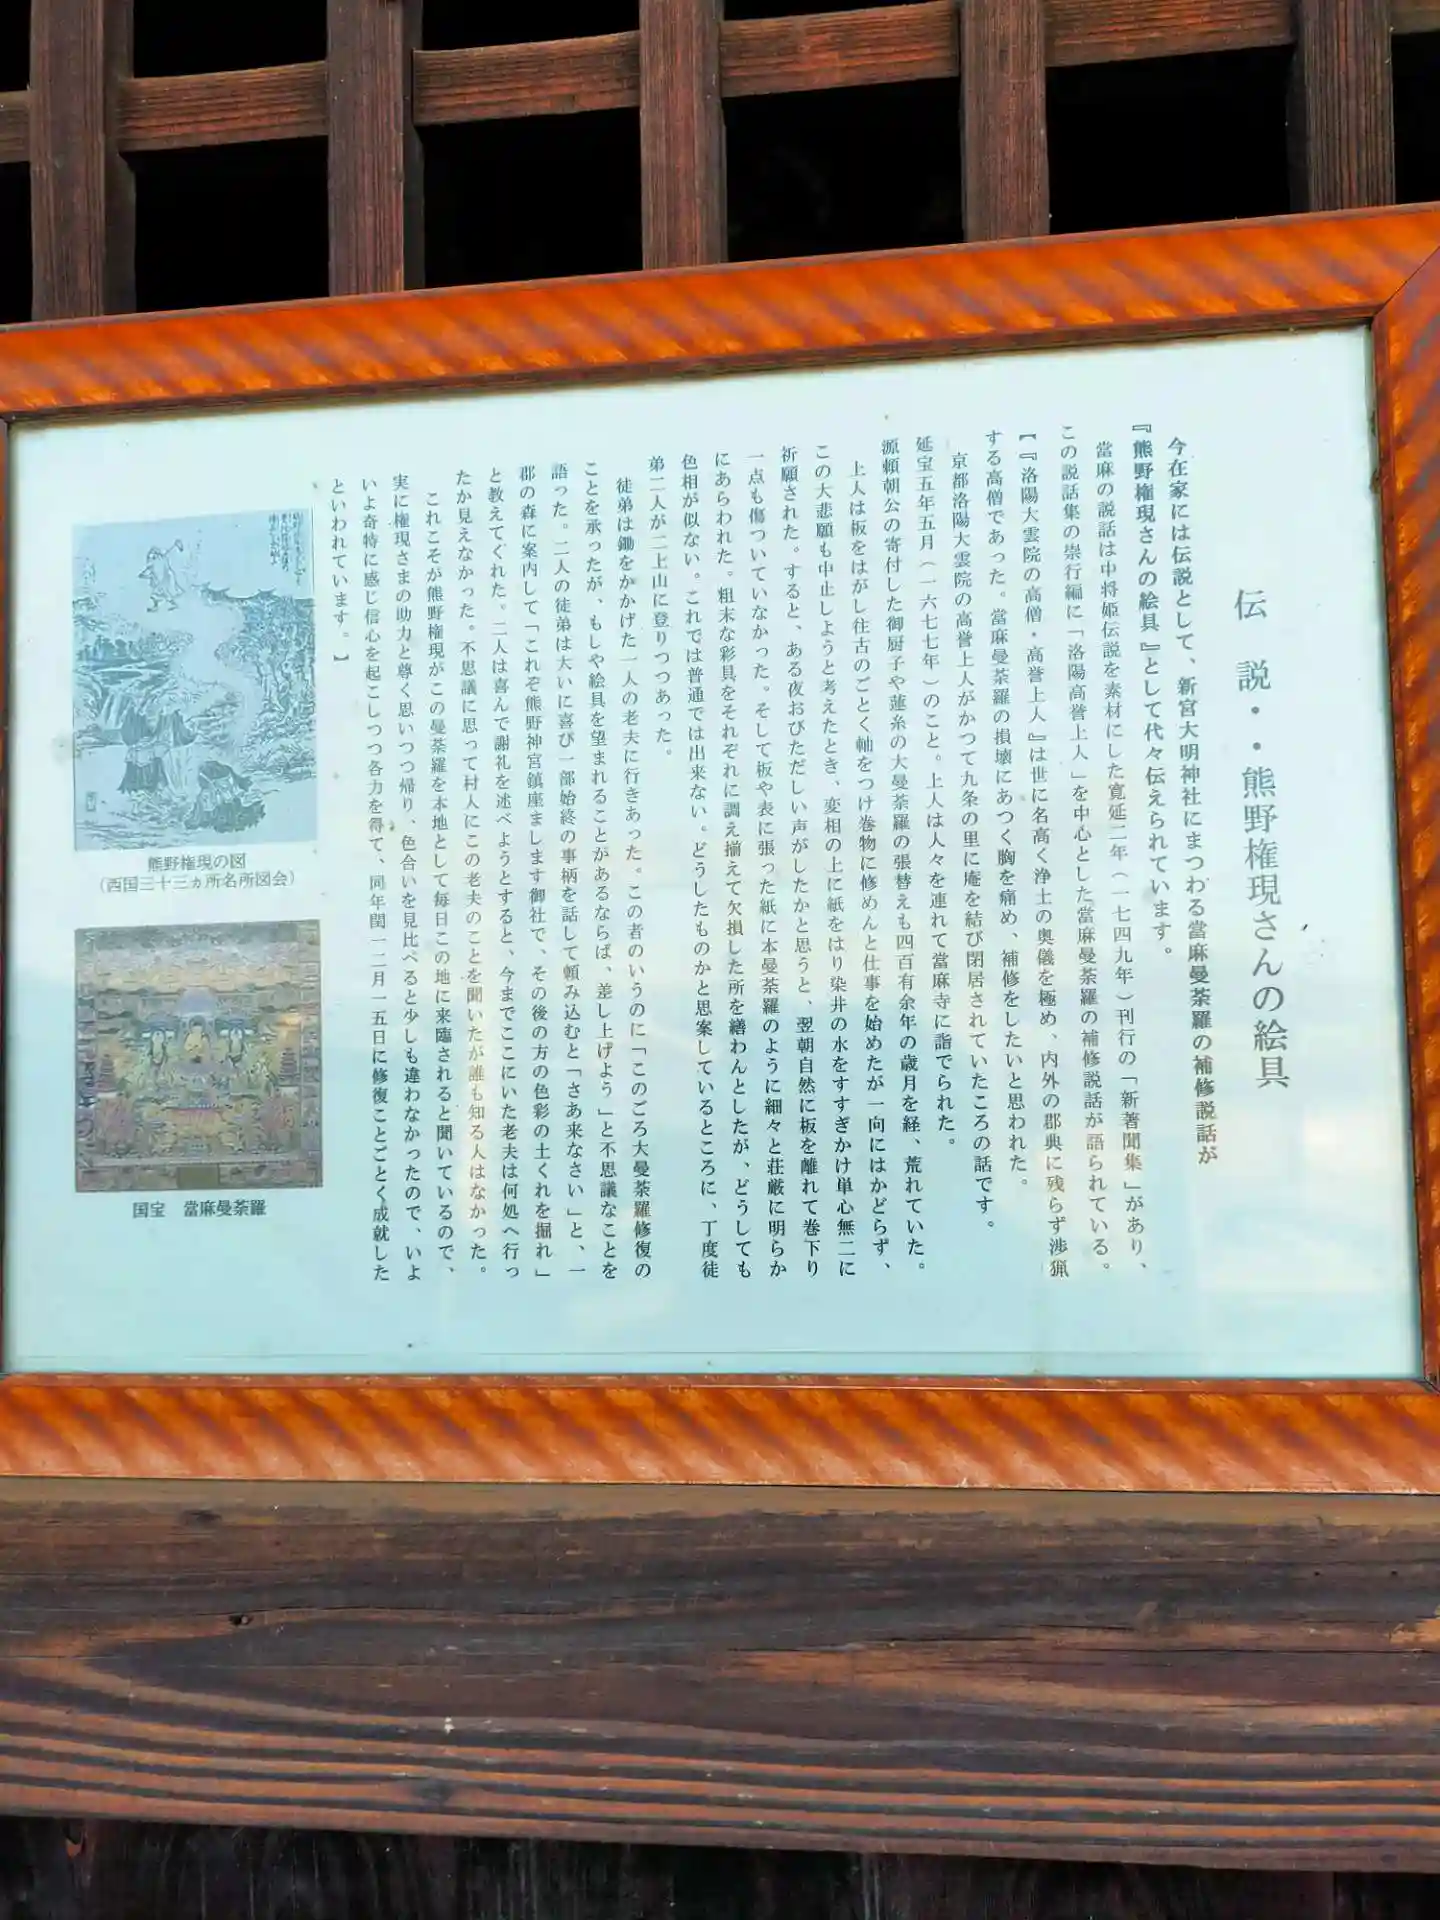 伝 説・・熊野権現さんの絵具
今在家には伝説として、新宮大明神社にまつわる當麻曼荼羅の補修説話が
『熊野権現さんの絵具』として代々伝えられています。
當麻の説話は中将姫伝説を素材にした寛延二年(一七四九年)刊行の「新著聞集」があり、
この説話集の崇行編に「洛陽高誉上人」を中心とした當麻曼荼羅の補修説話が語られている。
【『洛陽大雲院の高僧・高誉上人』は世に名高く浄土の奥儀を極め、内外の郡典に残らず渉猟
する高僧であった。當麻曼荼羅の損壊にあつく胸を痛め、補修をしたいと思われた。
京都洛陽大雲院の高誉上人がかつて九条の里に庵を結び閉居されていたころの話です。
延宝五年五月(一六七七年)のこと。上人は人々を連れて當麻寺に詣でられた。
源頼朝公の寄付した御厨子や蓮糸の大曼荼羅の張替えも四百有余年の歳月を経、荒れていた。
上人は板をはがし往古のごとく軸をつけ巻物に修めんと仕事を始めたが一向にはかどらず、
この大悲願も中止しようと考えたとき、変相の上に紙をはり染井の水をすすぎかけ単心無二に
祈願された。すると、ある夜おびただしい声がしたかと思うと、翌朝自然に板を離れて巻下り
一点も傷ついていなかった。そして板や表に張った紙に本曼荼羅のように細々と荘厳に明らか
にあらわれた。粗末な彩具をそれぞれに調え揃えて欠損した所を繕わんとしたが、どうしても
色相が似ない。これでは普通では出来ない。どうしたものかと思案しているところに、丁度徒
弟二人が二上山に登りつつあった。
徒弟は鋤をかかげた一人の老夫に行きあった。この者のいうのに「このごろ大曼荼羅修復の
ことを承ったが、もしや絵具を望まれることがあるならば、差し上げよう」と不思議なことを
語った。二人の徒弟は大いに喜び一部始終の事柄を話して頼み込むと「さあ来なさい」と、一
郡の森に案内して「これぞ熊野神宮鎮座まします御社で、その後の方の色彩の土くれを掘れ」
と教えてくれた。二人は喜んで謝礼を述べようとすると、今までここにいた老夫は何処へ行っ
たか見えなかった。不思議に思って村人にこの老夫のことを聞いたが誰も知る人はなかった。
これこそが熊野権現がこの曼荼羅を本地として毎日この地に来臨されると聞いているので、
実に権現さまの助力と尊く思いつつ帰り、色合いを見比べると少しも違わなかったので、いよ
いよ奇特に感じ信心を起こしつつ各力を得て、同年閏一二月一五日に修復ことごとく成就した
といわれています。】
熊野権現の図
(西国三十三ヵ所名所図会)
国宝 當麻曼荼羅